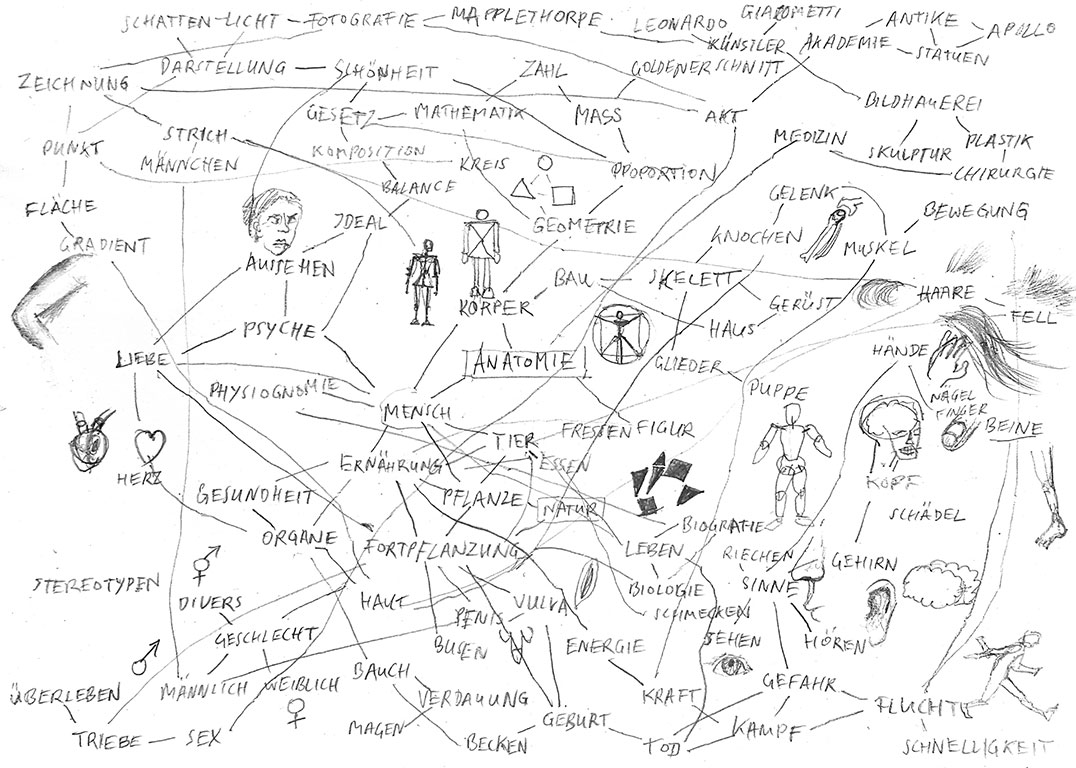 SCHATTEN-LICHT
FOTOGRAFIE
MAPPLETHORPE
LEONARDO
GIACOMETTI
KÜNSTLER
AKADEMIE
ANTIKE
APOLLO
STATUEN
ZEICHNUNG
DARSTELLUNG
SCHÖNHEIT
ZAHL
GOLDENER SCHNITT
BILDHAUEREI
GESETZ
MATHEMATIK
MASS
AKT
PUNKT
STRICH
MÄNNCHEN
KOMPOSITION
KREIS
PROPORTION
MEDIZIN
SKULPTUR
PLASTIK
CHIRURGIE
BALANCE
FLÄCHE
IDEAL
GEOMETRIE
GELENK
BEWEGUNG
GRADIENT
AUSSEHEN
KNOCHEN
MUSKEL
BAU
SKELETT
KÖRPER
GERÜST
HAARE
FELL
PSYCHE
HAUS
LIEBE
ANATOMIE
GLIEDER
HÄNDE
PHYSIOGNOMIE
MENSCH
PUPPE
NÄGEL
FINGER
BEINE
TIER
FRESSEN
FIGUR
ERNÄHRUNG
ESSEN
HERZ
GESUNDHEIT
PFLANZE
NATUR
KOPF
SCHÄDEL
ORGANE
FORTPFLANZUNG
BIOGRAFIE
LEBEN
RIECHEN
GEHIRN
STEREOTYPEN
DIVERS
HAUT
BIOLOGIE
SINNE
PENIS
VULVA
SCHMECKEN
GESCHLECHT
BUSEN
ENERGIE
SEHEN
HÖREN
ÜBERLEBEN
MÄNNLICH
WEIBLICH
BAUCH
VERDAUUNG
KRAFT
GEFAHR
FLUCHT
TRIEBE
SEX
MAGEN
BECKEN
GEBURT
TOD
KAMPF
SCHNELLIGKEIT